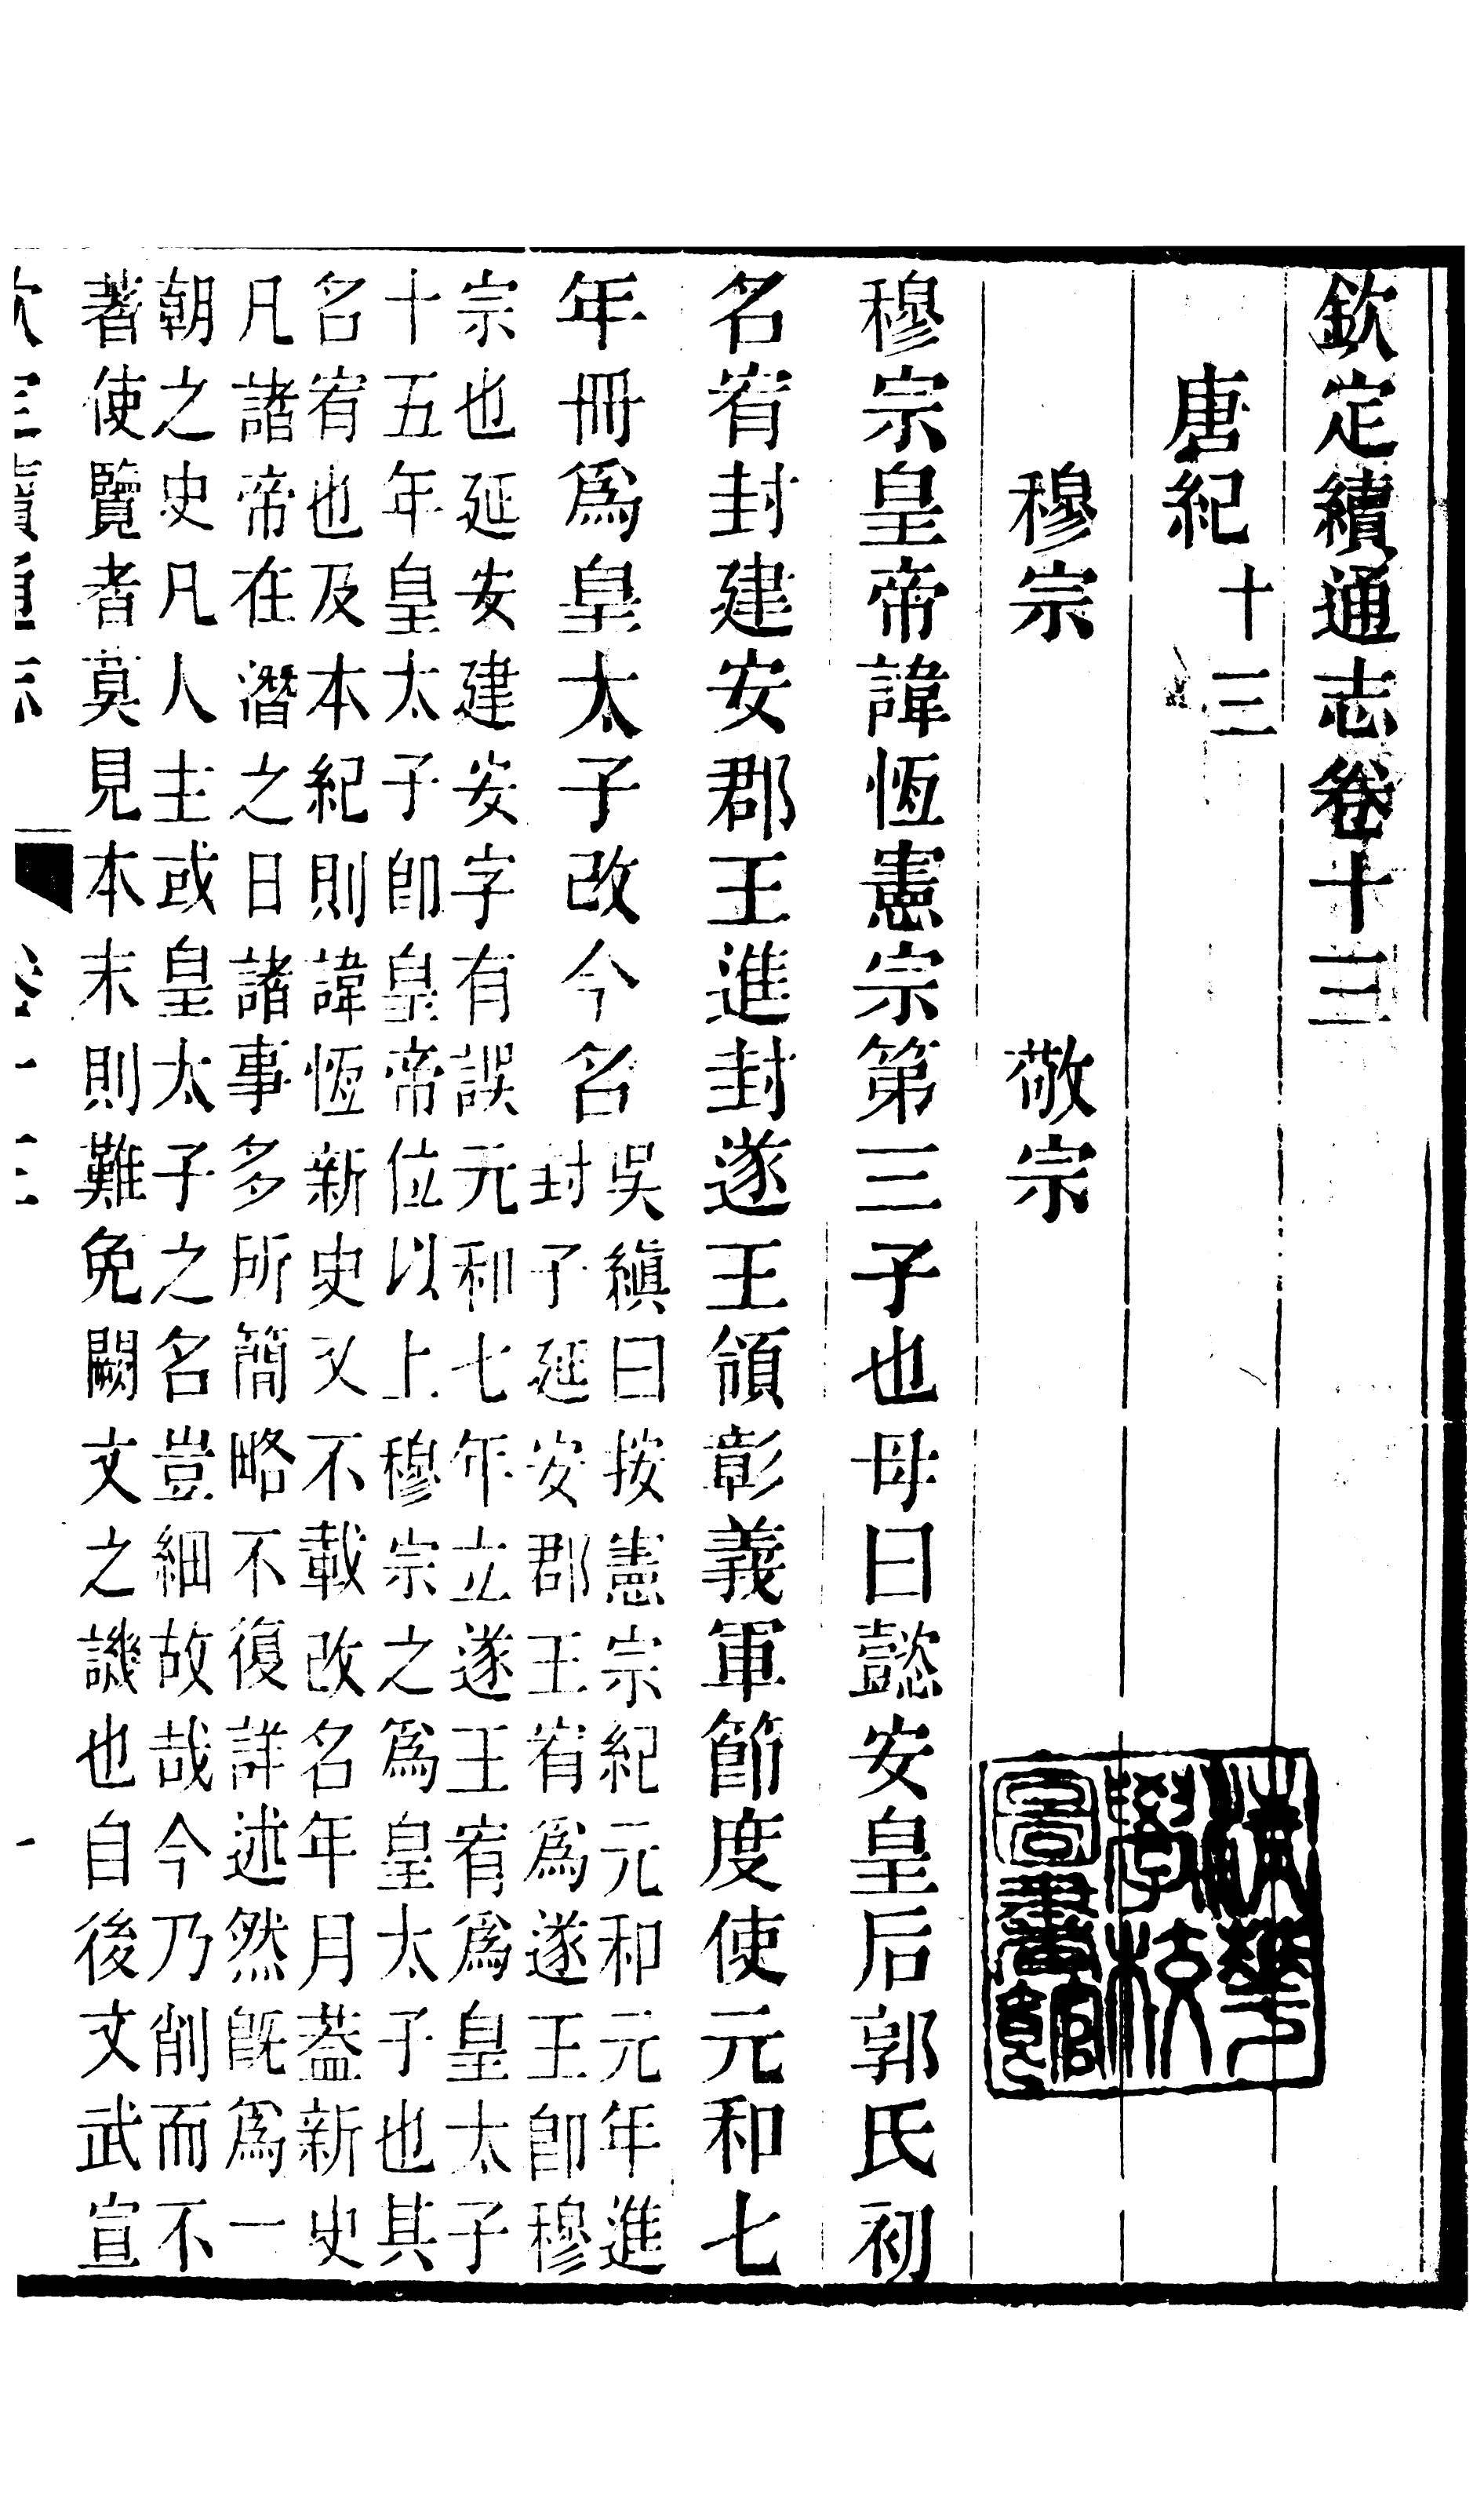 欽定續通志卷十三
唐紀十三
穆宗　敬宗
穆宗皇帝諱恆憲宗第三子也母曰懿安皇后郭氏初
名宥封建安郡王進封遂王領彰義軍節度使元和七
年冊爲皇太子改今名
吳縝曰按憲宗紀元和元年進
封子延安郡王宥爲遂王卽穆
宗也延安建安字有誤元和七年立遂王宥爲皇太子
十五年皇太子卽皇帝位以上穆宗之爲皇太子也其
名宥也及本紀則諱恆新史又不載改名年月葢新史
凡諸帝在潛之日諸事多所簡略不復詳述然旣爲一
朝之史凡人主或皇太子之名豈細故哉今乃削而不
著使覽者莫見本末則難免闕文之譏也自後文武宣
清華學校圖書館